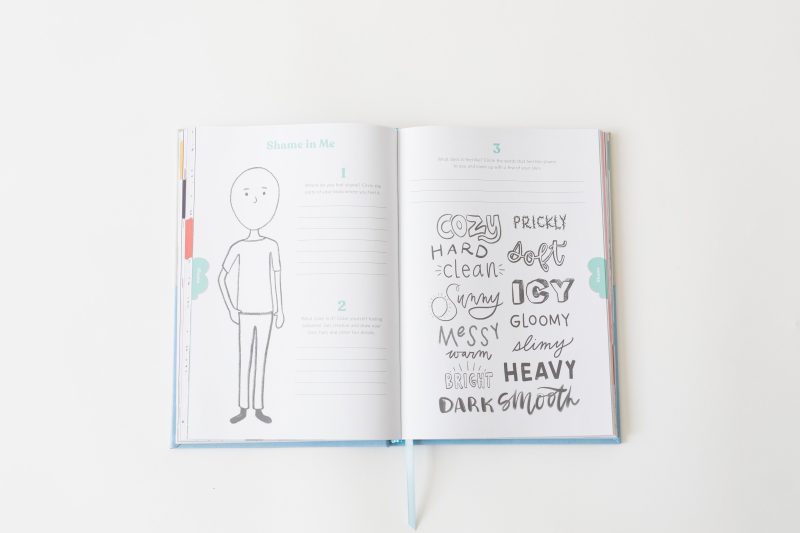 Shame in Me
1
Where do you feel shame? Circle the
parts of your body where you feel it.
2
What color is it? Color yourself feeling
3
What does it feel like? Circle the words that feel like shame
to you and come up with a few of your own.
COZY
PRICKLY
HARD
soft
clean
Sunny
ICY
MESSY
GLOOMY
warm
slimy
BRIGHT
HEAVY
DARK
smooth